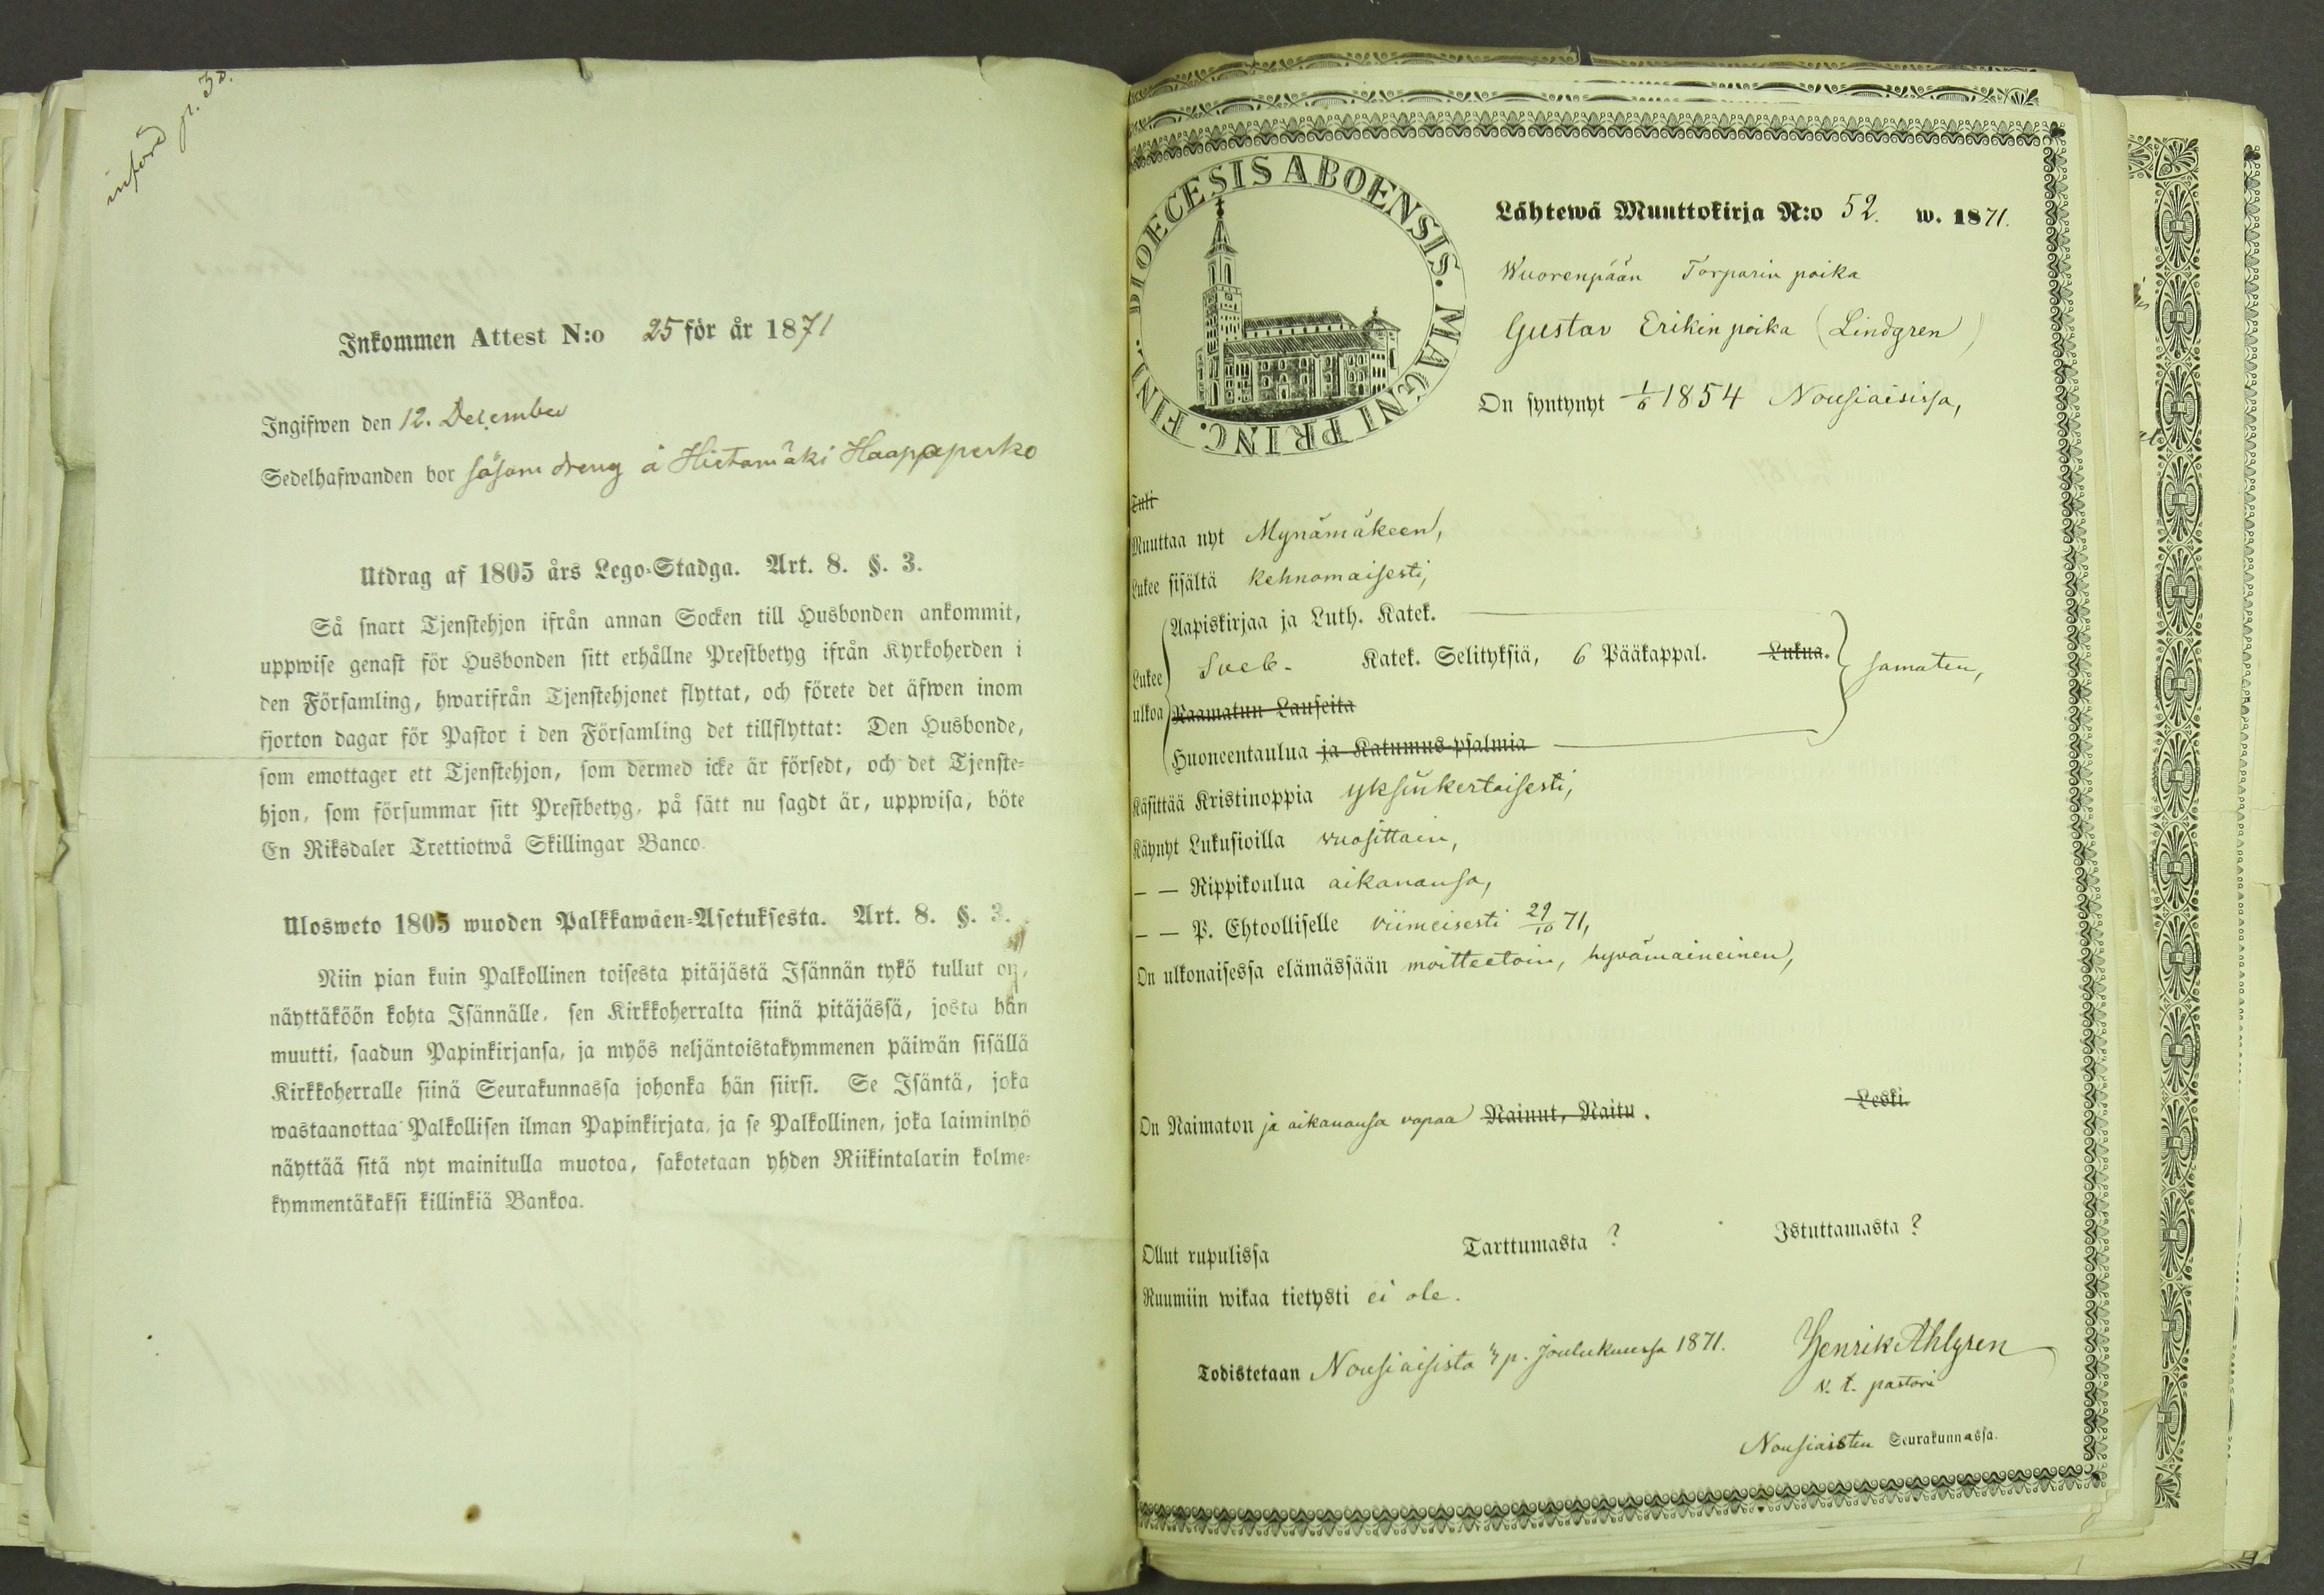 införd p. 30.
Inkommen Attest N:o 25 för år 1871
Ingifwen den 12. December
Sedelhafwanden bor såsom dreng å Hietamäki Haapaperko
Utdrag af 1805 års Lego-Stadga. Art. 8. §. 3.
Så snart Tjenstehjon ifrån annan Socken till Husbonden ankommit,
uppwise genast för Husbonden sitt erhållne Prestbetyg ifrån Kyrkoherden i
den Församling, hwarifrån Tjenstehjonet flyttat, och förete det äfwen inom
fjorton dagar för Pastor i den Församling det tillflyttat: Den Husbonde,
som emottager ett Tjenstehjon, som dermed icke är försedt, och det Tjenste-
hjon, som försummar sitt Prestbetyg, på sätt nu sagdt är, uppwisa, böte
En Riksdaler Trettiotwå Skillingar Banco.
Ulosweto 1805 wuoden Palkkawäen-Asetuksesta. Art. 8. §. 3.
Niin pian kuin Palkollinen toisesta pitäjästä Isännän tykö tullut on,
näyttäköön kohta Isännälle, sen Kirkkoherralta siinä pitäjässä, josta hän
muutti, saadun Papinkirjansa, ja myös neljäntoistakymmenen päiwän sisällä
Kirkkoherralle siinä Seurakunnassa johonka hän siirsi. Se Isäntä, joka
wastaanottaa Palkollisen ilman Papinkirjata, ja se Palkollinen, joka laiminlyö
näyttää sitä nyt mainitulla muotoa, sakotetaan yhden Riikintalarin kolme-
kymmentäkaksi killinkiä Bankoa.
FINL. DIOECESIS ABOENSIS. MAGNI PRINC.
Lähtewä Muuttokirja N:o 52. w. 1871.
Wuorenpään Torparin poika
Gustav Erikin poika (Lindgren)
On syntynyt 1/6 1854 Nousiaisissa,
Tuli
Muuttaa nyt Mynämäkeen,
Lukee sisältä kehnomaisesti,
Aapiskirjaa ja Luth. Katek.
Lukee Sveb. Katek. Selityksiä, 6 Pääkappal. Lukua. samaten,
ulkoa Raamatun Lauseita
Huoneentaulua ja Katumus-psalmia
Käsittää Kristinoppia yksinkertaisesti,
Käynyt Lukusioilla vuosittain,
— — Rippikoulua aikanansa,
— — P. Ehtoolliselle viimeisesti 29/10 71,
On ulkonaisessa elämässään moitteetoin, hyvämaineinen,
On Naimaton ja aikanansa vapaa Nainut, Naitu. Leski.
Ollut rupulissa Tarttumasta ? Istuttamasta ?
Ruumiin wikaa tietysti ei ole.
Todistetaan Nousiaisista p. Joulukuussa 1871. Henrik Ahlgren
v. t. pastori
Nousiaisten Seurakunnassa.